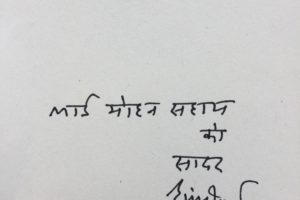 भाई मोहन सहाय
को
सादर